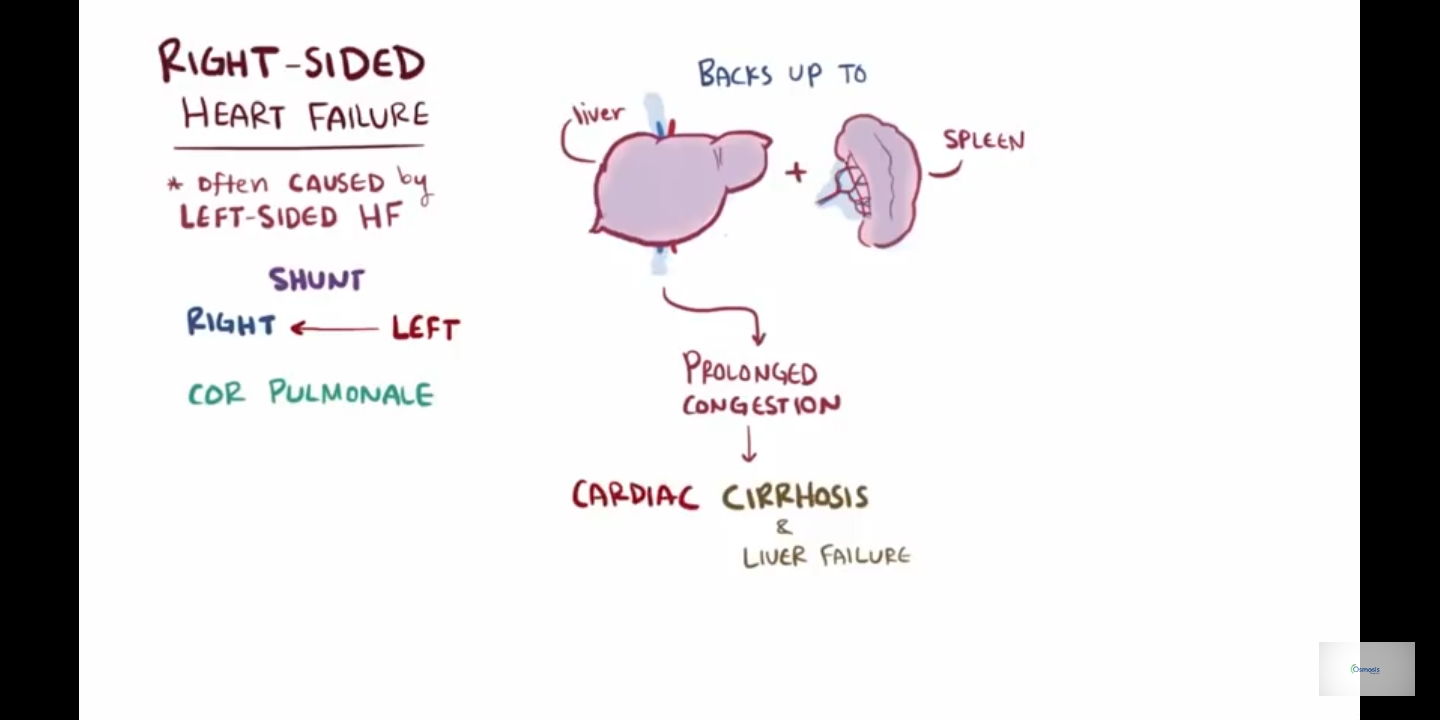 RIGHT-SIDED
HEART FAILURE
* often CAUSED by
LEFT-SIDED HF
SHUNT
RIGHT ← LEFT
COR PULMONALE
BACKS UP TO
liver
+
SPLEEN
PROLONGED
CONGESTION
CARDIAC CIRRHOSIS
&
LIVER FAILURE
Osmosis